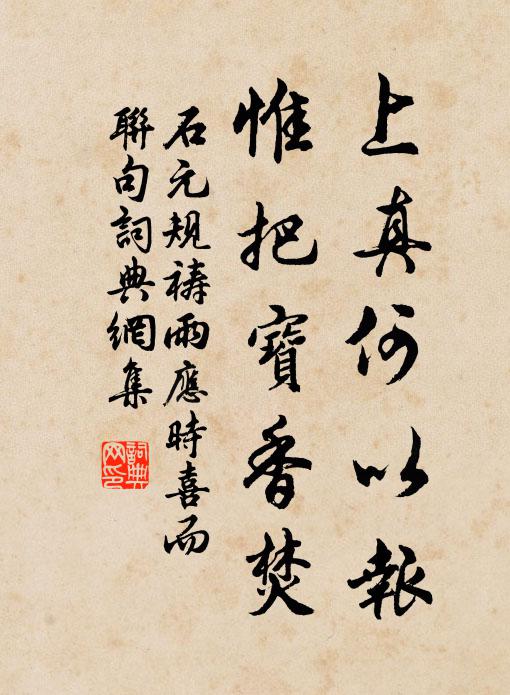 上真何以報
惟把寶香焚
石元規禱雨應時喜而
聯句詞典網集
詞典网印